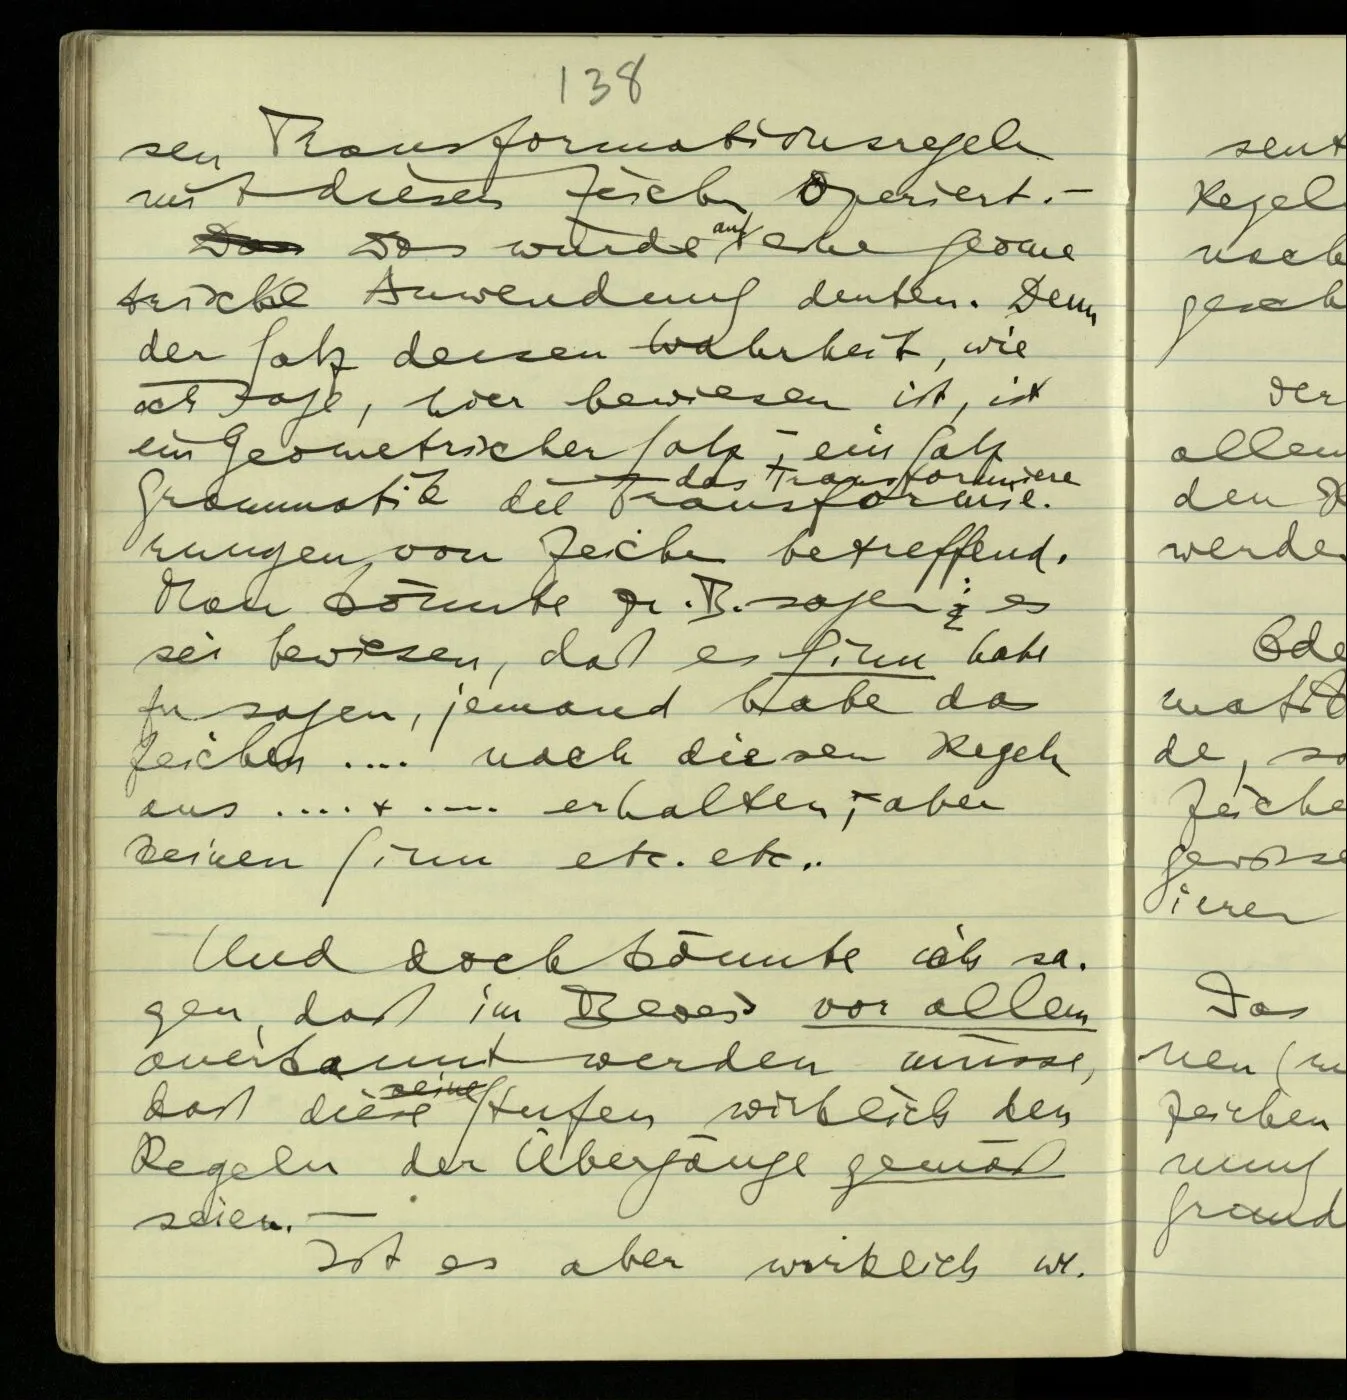 138
sen Transformationsregeln
mit diesen Zeichen operiert. –
Das Das würde auf eine geome
trische Anwendung deuten. Denn
der Satz dessen Wahrheit, wie
ich sage, hier bewiesen ist, ist
ein Geometrischer Satz – ein Satz
das Transformiere
Grammatik die Transformie-
rungen von Zeichen betreffend.
Man könnte z. B. sagen: es
sei bewiesen, daß es Sinn habe
zu sagen, jemand habe das
Zeichen .... nach diesen Regeln
aus .... & .... erhalten; aber
keinen Sinn etc. etc..
Und doch könnte ich sa-
gen, daß im Beweis vor allem
anerkannt werden müsse,
seine
daß diese Stufen wirklich den
Regeln der Übergänge gemäß
seien. –
Ist es aber wirklich wi-
sent
Regel
nach
gesch
Der
allem
den
werde
Ode
matik
de, so
Zeiche
gewisse
ieren
Das
nen
Zeichen
nung
Grund